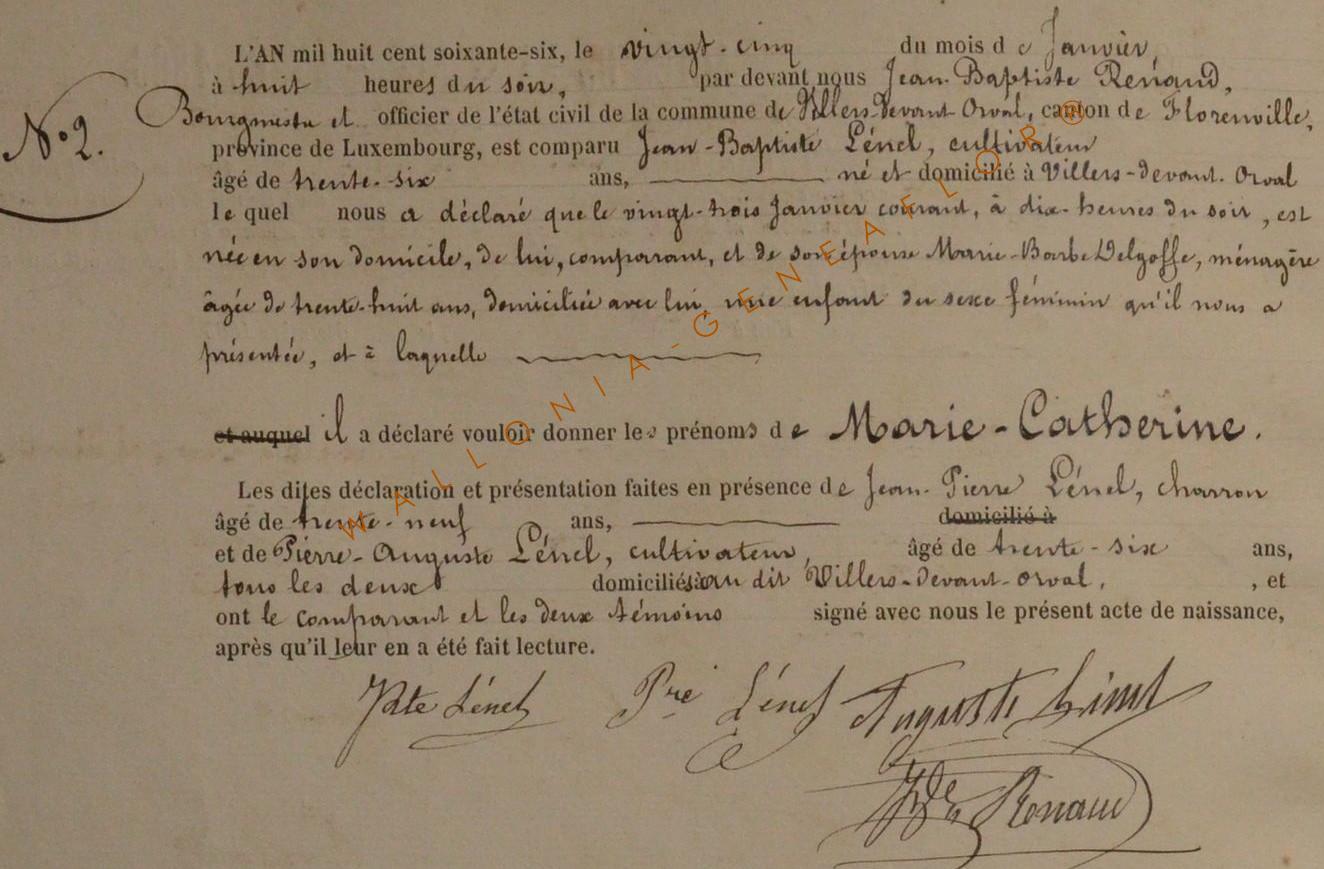 L'AN mil huit cent soixante-six, le vingt-cinq du mois de Janvier,
à huit heures du soir, par devant nous Jean-Baptiste Renaud,
Bourgmestre et officier de l'état civil de la commune de Villers-devant Orval, canton de Florenville,
N° 2.
province de Luxembourg, est comparu Jean-Baptiste Lénel, cultivateur
âgé de trente-six ans, né et domicilié à Villers-devant-Orval
lequel nous a déclaré que le vingt-trois Janvier courant, à dix-heures du soir, est
née en son domicile, de lui, comparant, et de son épouse Marie-Barbe Delgoffe, ménagère
âgée de trente-huit ans, domiciliée avec lui, une enfant du sexe féminin qu'il nous a
présentée, et à laquelle
et auquel il a déclaré vouloir donner les prénoms de Marie-Catherine.
Les dites déclaration et présentation faites en présence de Jean-Pierre Lénel, charron
âgé de trente-neuf ans, domicilié à
et de Pierre-Auguste Lénel, cultivateur, âgé de trente-six ans,
tous les deux domiciliés au dit Villers-devant-Orval, , et
ont le comparant et les deux témoins signé avec nous le présent acte de naissance,
après qu'il leur en a été fait lecture.
JBte Lénel Pre Lénel Auguste Lénel
Renaud
WALLONIA-GENEAFLOR©